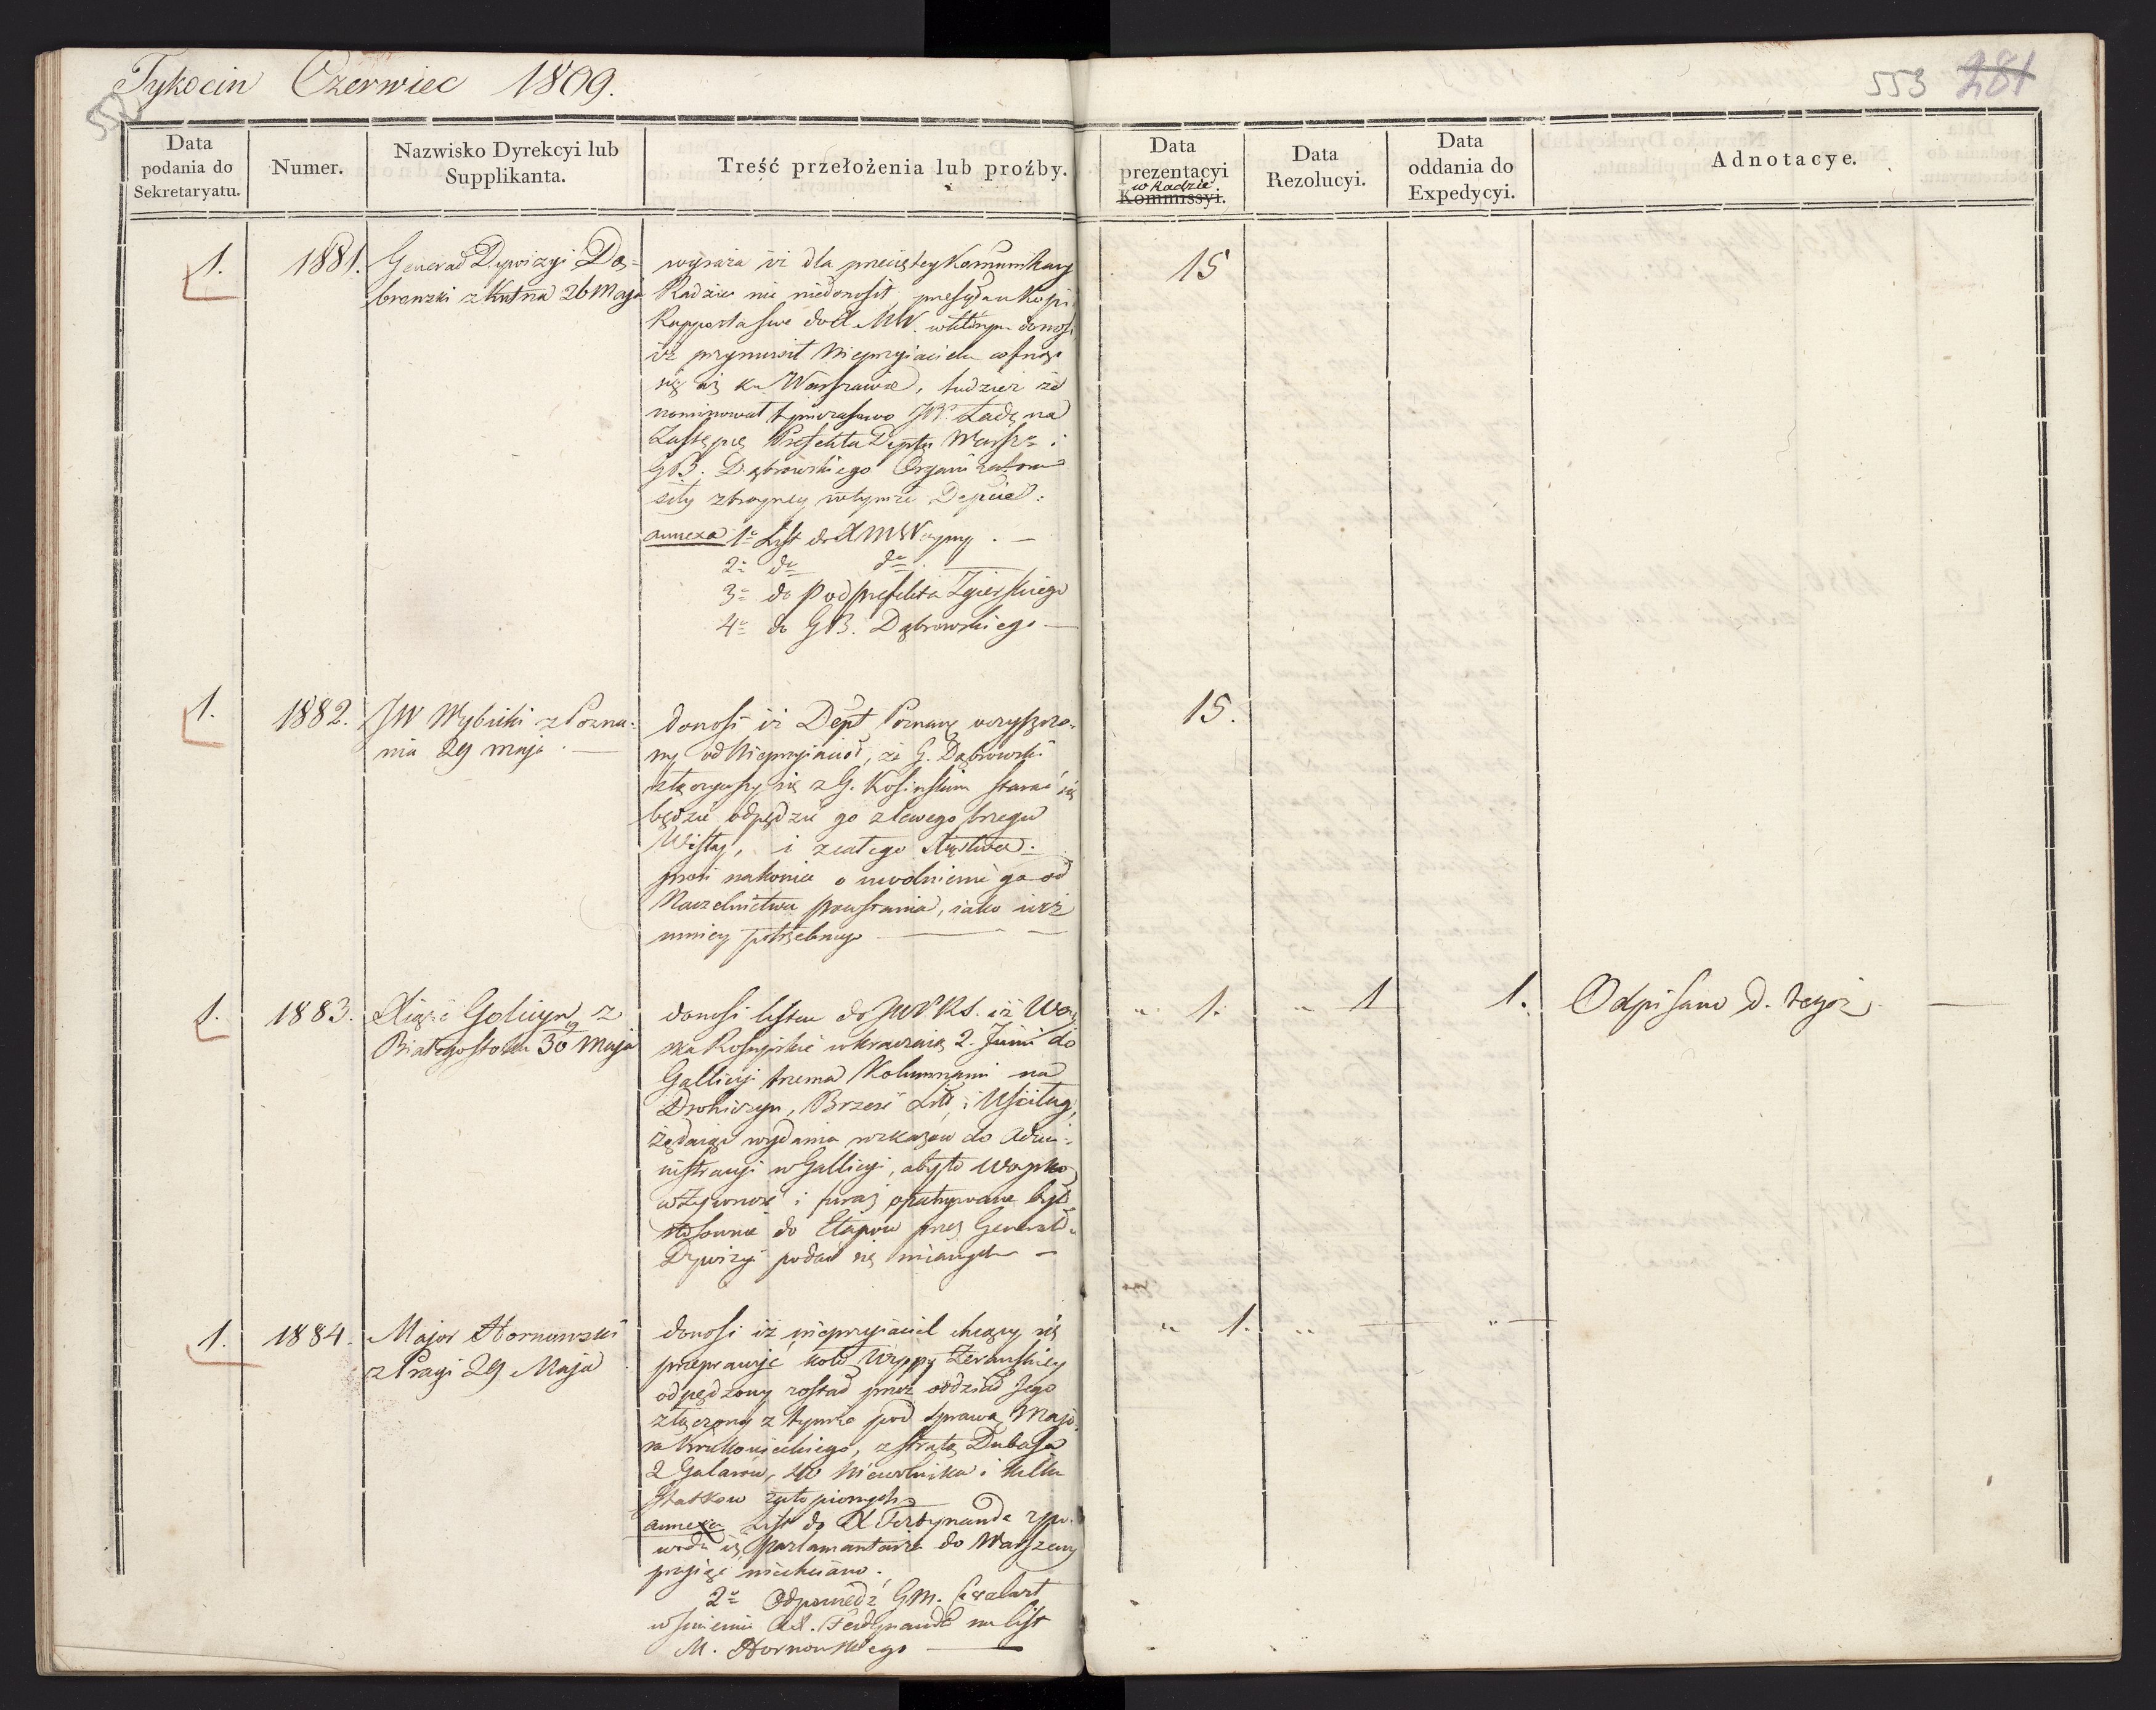 Tykocin Czerwiec 1809.
553 281
552
Data
podania do
Sekretaryatu.
Numer.
Nazwisko Dyrekcyi lub
Supplikanta.
Treść przełożenia lub proźby.
Data
prezentacyi
w Radzie
Kommissyi.
Data
Rezolucyi.
Data
oddania do
Expedycyi.
Adnotacye.
1. 1881. Generał Dywizyi Dą-
browski z Kutna 26 Maja
wyraża iż dla przeciętey Komunikacyi
Radzie nic niedonosił, przesyła Kopią
Rapportu swe do X MW. w którym donosi
iż przymusił Nieprzyiaciela cofnąć
się aż ku Warszawie, tudzież że
nominował tymczasowo JW. Łączę na
Zastępcę Prefekta Deptu Warsz. i
GB. Dąbrowskiego Organizatorem
siły zbroyney w tymże Depcie.
annexa 1o List do X MW oyny. —
2o do do
3o do Podprefekta Zgierskiego
4o do GB. Dąbrowskiego —
15
1. 1882. JW Wybicki z Pozna-
nia 29 maja. —
donosi iż Dept Poznań. oczyszczo-
ny od Nieprzyiaciół, że G. Dąbrowski
złączywszy się z G. Kosińskim starać się
będzie odpędzić go z lewego brzegu
Wisły, i z całego Xięstwa.
prosi nakoniec o uwolnienie go od
Naczelnictwa powstania, iako iuż
mniey potrzebnego —
15.
1. 1883. Xiąże Golicyn z
Białegostoku 30 Maja
donosi listem do JWPKs. iż Woy-
ska Rossyiskie wkraczaią 2. Junii do
Gallicyi trzema Kolumnami na
Drohiczyn, Brześć Lit. i Uściług,
żądaiąc wydania rozkazów do Admi-
nistracyi w Gallicyi, aby to Woysko
w żywność i furaż opatrywane było
stosownie do Etapów przez Generałów
Dywizyi podać się maiących —
" 1. " 1 1. Odpisano d. tegoż —
1. 1884. Major Hornowski
z Pragi 29 Maja
donosi iż nieprzyiaciel chcący się
przeprawić koło Kępy Żerańskiey
odpędzony został przez oddział Jego
złączony z tymże pod sprawą Majo-
ra Krukowieckiego, z stratą Dubasa
2 Galarów, Niewolnika i kilku
Statkow zatopionych
annexa List do X Ferdynanda z po-
wodu iż parlamentarza do Warszawy
przyiąć niechciano.
2o Odpowiedź GM.
w imieniu AX. Ferdynanda na list
M. Hornowskiego —
" 1. " — " —